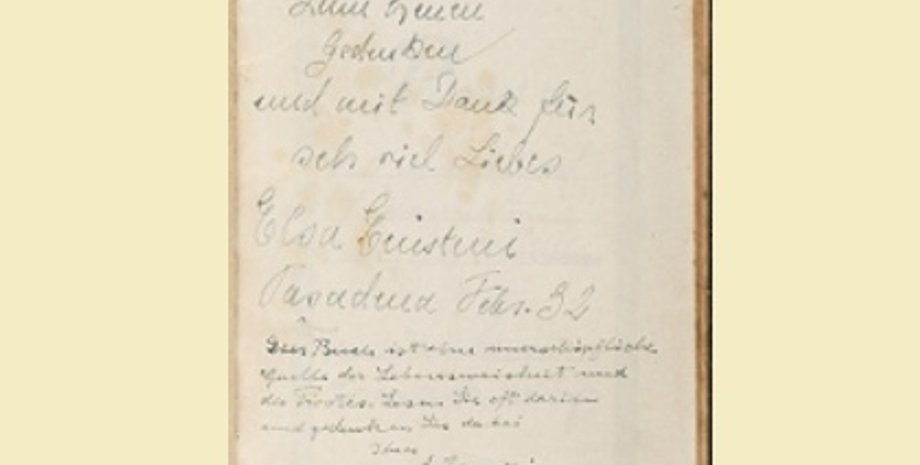 Zum treuen
Gedenken
und mit Dank für
seh viel Liebes
Elsa Einstein
Pasadena Febr. 32
Dies Buch ist eine unerschöpfliche
Quelle der Lebensweisheit und
des Trostes. Lesen Sie oft darin
und gedenken Sie dabei
Ihres
A. Einstein